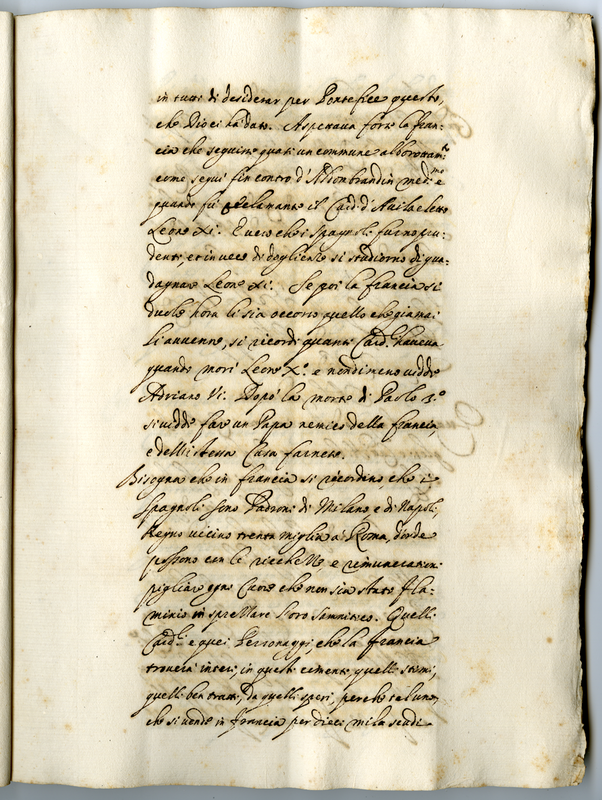 in tutti di desiderar per Pontefice questo,
che Dio ci hà dato. Aspettava forse la fran:
cia che seguisse quasi un commune abborrimen:to
come seguì fin contro d'Aldonbrandin med:mo e
quando fù acclamante il Card: d'Avila eletto
Leone XI. È vero che i spagnoli furno pru:
denti, et in vece di dogliense si studiorno di gua:
dagnare Leone XI. Se poi la francia si
duole hora li sia occorso quello che giamai
li avvenne, si ricordi quanti Card:li haveva
quando morì Leone X.o e nondimeno vidde
Adriano VI. Dopo la morte di Paolo 3.o
si vidde fare un Papa nemico della francia,
e dell'istessa Casa farnese.
Bisogna che in francia si ricordino, che i
spagnoli sono Padroni di Milano e di Napoli,
Regno vicino trenta miglia à Roma, d'onde
possono con le ricchezze, e rimunerationi
pigliare ogni Cuore che non sia stato fla:
minio in sprezzare l'oro sannitico. Quelli
Card:li e quei Personaggi, che la francia
troverà intieri, in questi cimenti quelli stimi,
quelli ben tratti, da quelli speri, perche taluno,
che si vende in francia per dieci mila scudi